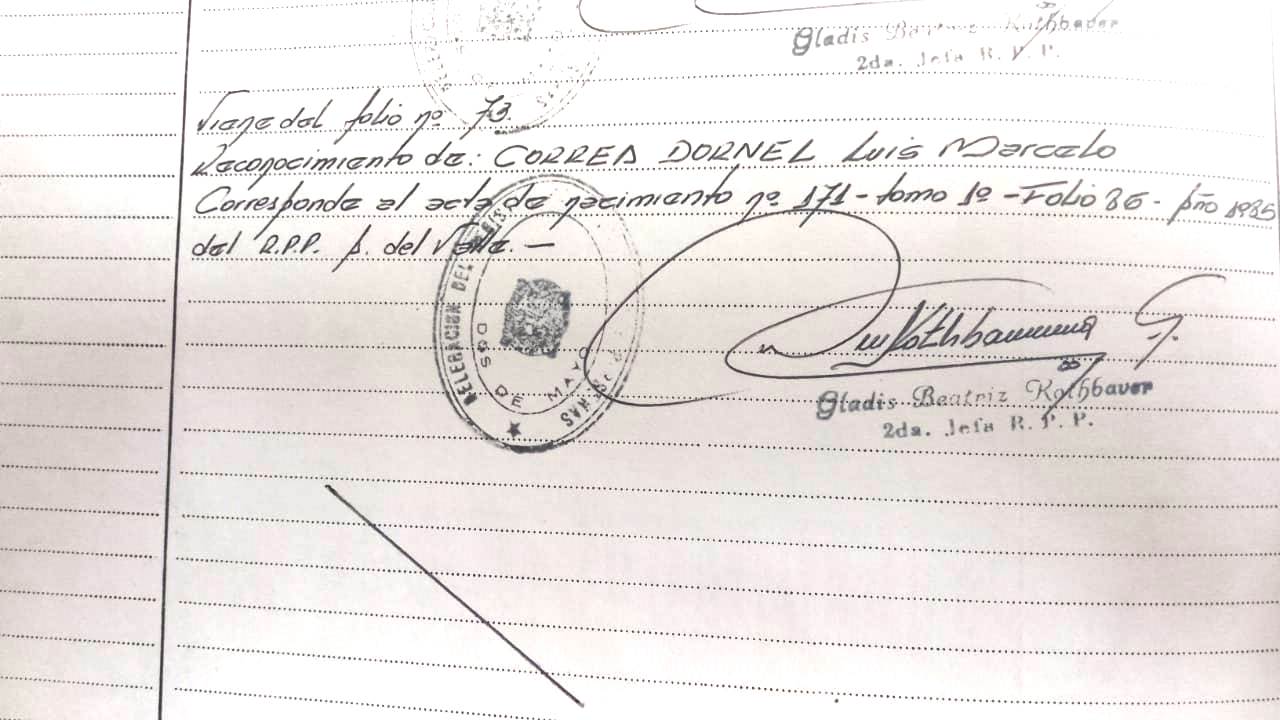 Gladis Beatriz Kothbaver
2da. Jefa R. P. P.
Viene del folio nº 73.
Reconocimiento de: CORREA DORNEL Luis Marcelo
Corresponde al acta de nacimiento nº 171 - tomo 1º - Folio 86 - Año 1985
del R.P.P. A. del Valle. —
DELEGACION DEL REGIS
DOS DE MAYO
NAS
Kothbaver
Gladis Beatriz Kothbaver
2da. Jefa R. P. P.